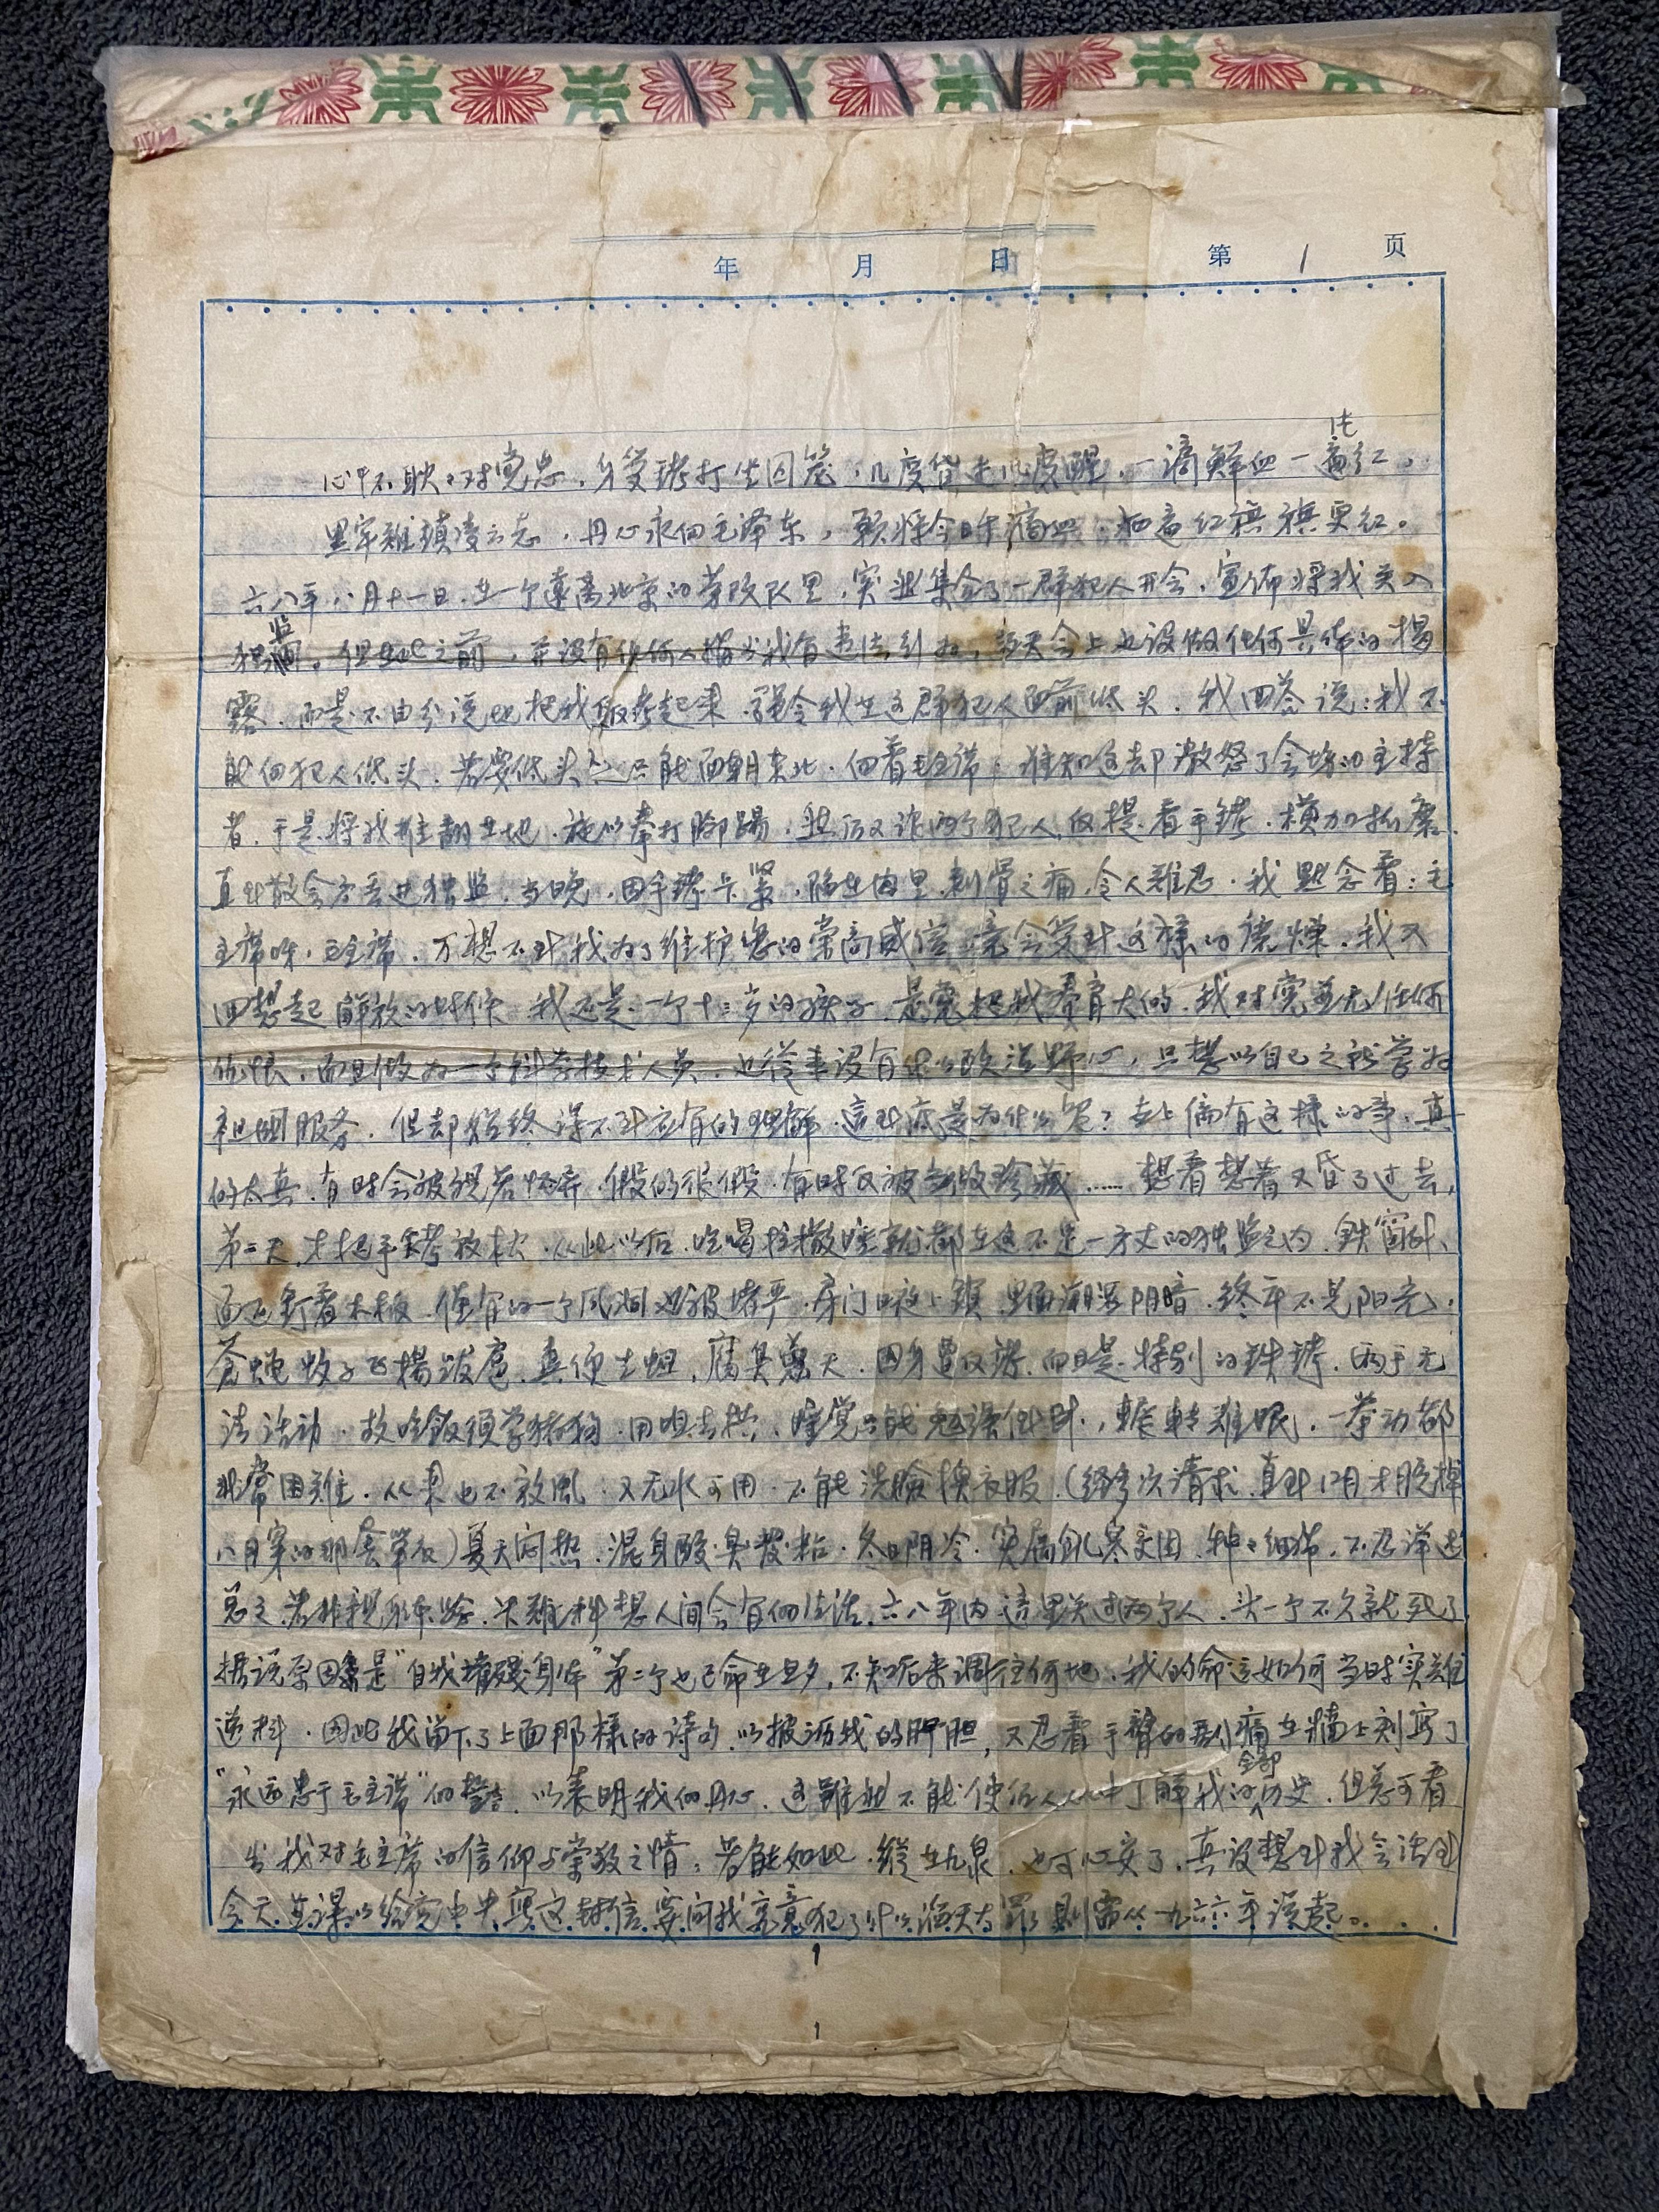 年 月 日 第 1 页
心中耿耿对党忠，身受铐打坐囚笼，几度昏去几度醒，一滴鲜血一遍红，
里牢难锁凌云志，丹心永向毛泽东，愿将今日牢痛血，洒遍红旗旗更红。
六八年八月十一日，在一个远离北京的劳改队里，突然集合了一群犯人开会，宣布将我关入
独监。但在此之前，并没有任何人指出我有违法行为，在大会上也没做任何具体的揭
露，而是不由分说地把我反铐起来，强令我在这群犯人面前低头。我回答说：我不
能向犯人低头，若要低头只能面朝东北，向着毛主席。谁知这却激怒了会场的主持
者，于是将我推翻在地，施以拳打脚踢，然后又派两个犯人，反提着手铐，横加折磨，
直到散会丢进独监，当晚，因手铐卡紧，陷在肉里，刺骨之痛，令人难忍。我默念着：毛
主席呀，毛主席，万想不到我为了维护您的崇高威信，竟会受到这样的磨炼。我又
回想起解放的时候，我还是一个十二岁的孩子，是党把我养育大的，我对党并无任何
仇恨，而且做为一个科学技术人员，也从来没有什么政治野心，只想以自己之所学为
祖国服务，但却始终得不到应有的理解，这到底是为什么呢？世上偏有这样的事，真
的太真，有时会被视若怀弃，假的很假，有时反被当做珍藏……想着想着又昏了过去，
第二天，才把手铐放松，从此以后，吃喝拉撒睡就都在这不足一方丈的独监之内，铁窗外
面还钉着木板，仅有的一个风洞也被堵严，房门日夜上锁，里面潮湿阴暗，终年不见阳光，
苍蝇蚊子飞扬跋扈，粪便生蛆，腐臭薰天，因身遭反铐，而且是特别的铁铐，两手无
法活动，故吃饭须学猪狗，用咀去拱，睡觉只能勉强侧卧，辗转难眠，一举动都
非常困难，从来也不放风，又无水可用，不能洗脸换衣服（经多次请求，直到12月才脱掉
八月穿的那套单衣）夏天闷热，混身酸臭发粘，冬日阴冷，实属饥寒交困，种种细节，不忍详述
总之，若非亲身体验，决难料想人间会有的生活，六八年内这里关过两个人，头一个不久就死了
据说原因是“自我摧残身体”第二个也已命在旦夕，不知后来调往何地，我的命运如何当时实难
逆料，因此我留下了上面那样的诗句，以披沥我的肝胆，又忍着手臂的剧痛在墙上刻写了
“永远忠于毛主席”的誓言，以表明我的丹心，这虽然不能使后人从中了解我的全部历史，但总可看
出我对毛主席的信仰与崇敬之情，若能如此，纵在九泉，也可心安了，真没想到我会活到
今天，并得以给党中央写这封信，要问我究竟犯了什么滔天大罪，则需从一九六六年谈起。
1
1